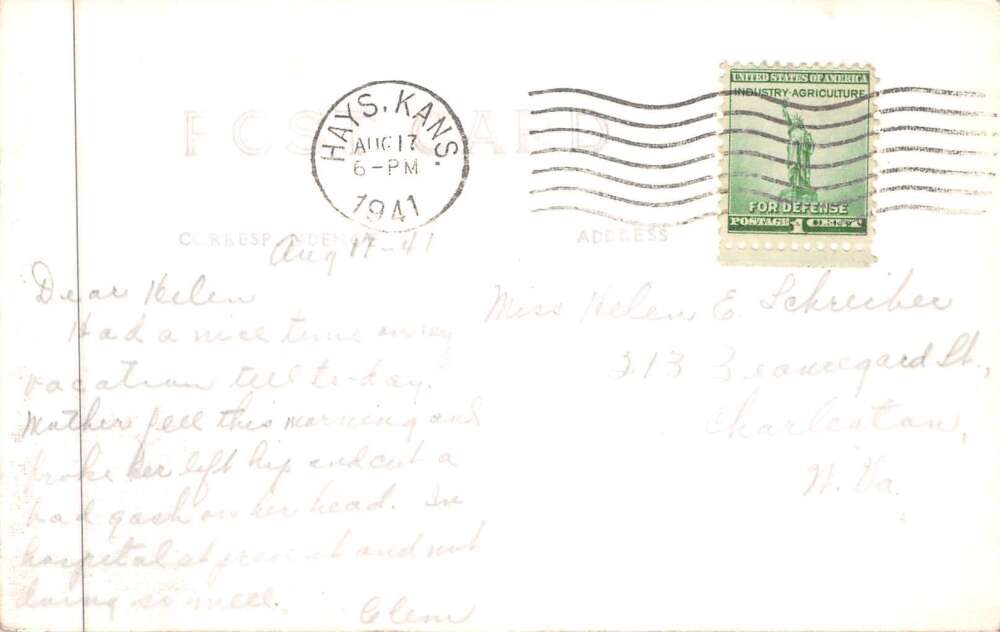 POST CARD
HAYS. KANS.
AUG 17
6-PM
1941
UNITED STATES OF AMERICA
INDUSTRY·AGRICULTURE
FOR DEFENSE
POSTAGE 1 CENT
CORRESPONDENCE
ADDRESS
Aug 17-41
Dear Helen
Had a nice time on my
vacation till to-day.
Mother fell this morning and
broke her left hip and cut a
bad gash on her head. In
hospital at present and not
doing so well.
Clem
Miss Helen E. Schreiber
213 Beauregard St.,
Charleston,
W. Va.